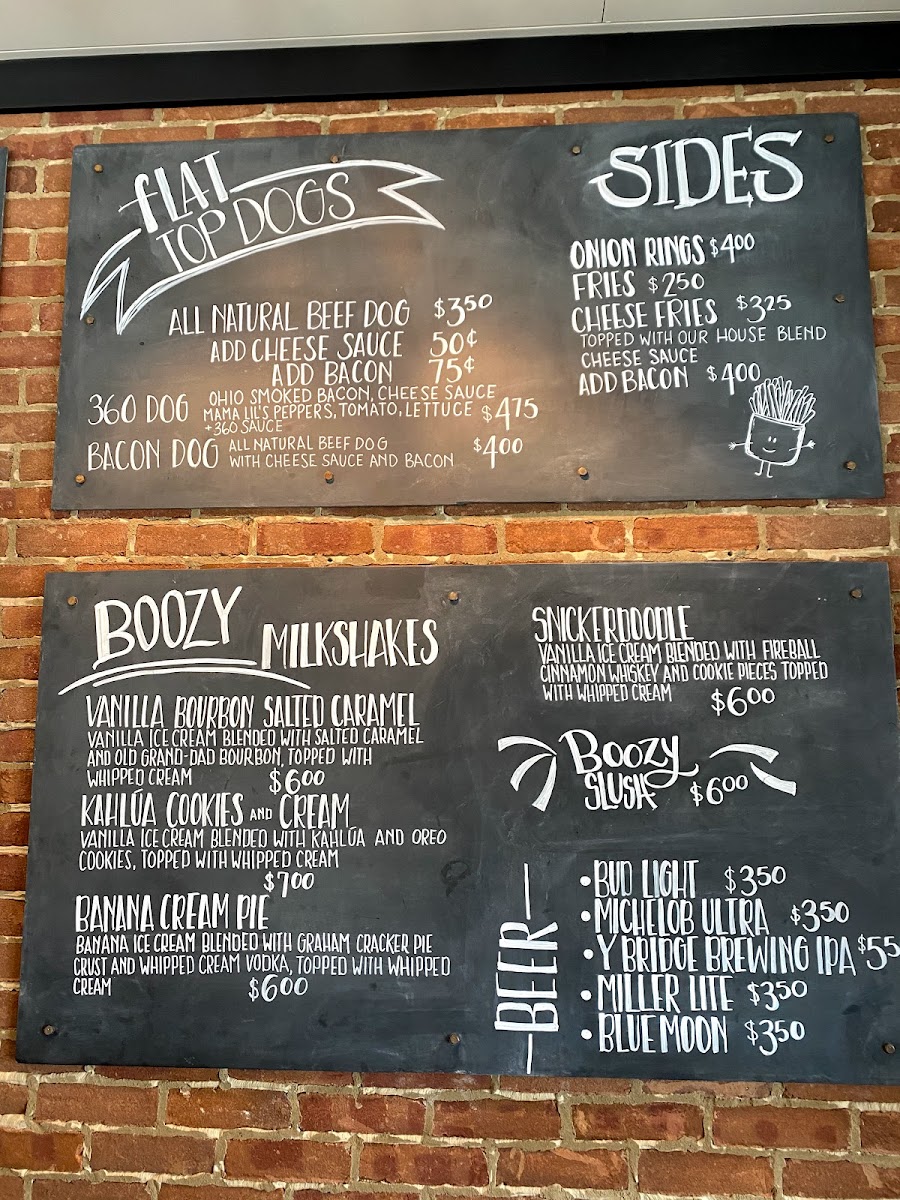 FLAT
TOP DOGS
ALL NATURAL BEEF DOG $3.50
ADD CHEESE SAUCE 50¢
ADD BACON 75¢
360 DOG OHIO SMOKED BACON, CHEESE SAUCE
MAMA LIL'S PEPPERS, TOMATO, LETTUCE $4.75
+360 SAUCE
BACON DOG ALL NATURAL BEEF DOG $4.00
WITH CHEESE SAUCE AND BACON
SIDES
ONION RINGS $4.00
FRIES $2.50
CHEESE FRIES $3.25
TOPPED WITH OUR HOUSE BLEND
CHEESE SAUCE
ADD BACON $4.00
BOOZY
MILKSHAKES
VANILLA BOURBON SALTED CARAMEL
VANILLA ICE CREAM BLENDED WITH SALTED CARAMEL
AND OLD GRAND-DAD BOURBON, TOPPED WITH
WHIPPED CREAM $6.00
KAHLÚA COOKIES AND CREAM
VANILLA ICE CREAM BLENDED WITH KAHLÚA AND OREO
COOKIES, TOPPED WITH WHIPPED CREAM
$7.00
BANANA CREAM PIE
BANANA ICE CREAM BLENDED WITH GRAHAM CRACKER PIE
CRUST AND WHIPPED CREAM VODKA, TOPPED WITH WHIPPED
CREAM $6.00
SNICKERDOODLE
VANILLA ICE CREAM BLENDED WITH FIREBALL
CINNAMON WHISKEY AND COOKIE PIECES TOPPED
WITH WHIPPED CREAM $6.00
BOOZY
SLUSH $6.00
BEER
• BUD LIGHT $3.50
• MICHELOB ULTRA $3.50
• Y BRIDGE BREWING IPA $55
• MILLER LITE $3.50
• BLUE MOON $3.50